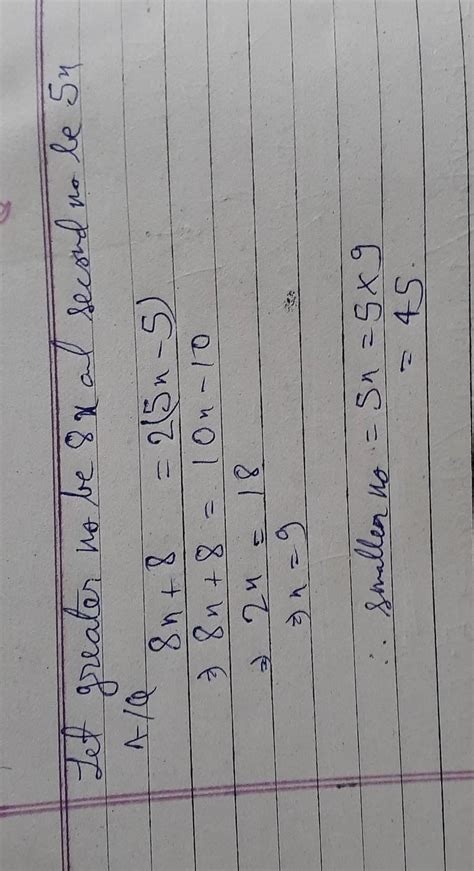 Let greater no be 8x al second no be 5x
A/Q
8x + 8 = 2(5x - 5)
⇒ 8x + 8 = 10x - 10
⇒ 2x = 18
⇒ x = 9
∴ smaller no = 5x = 5 × 9
= 45.